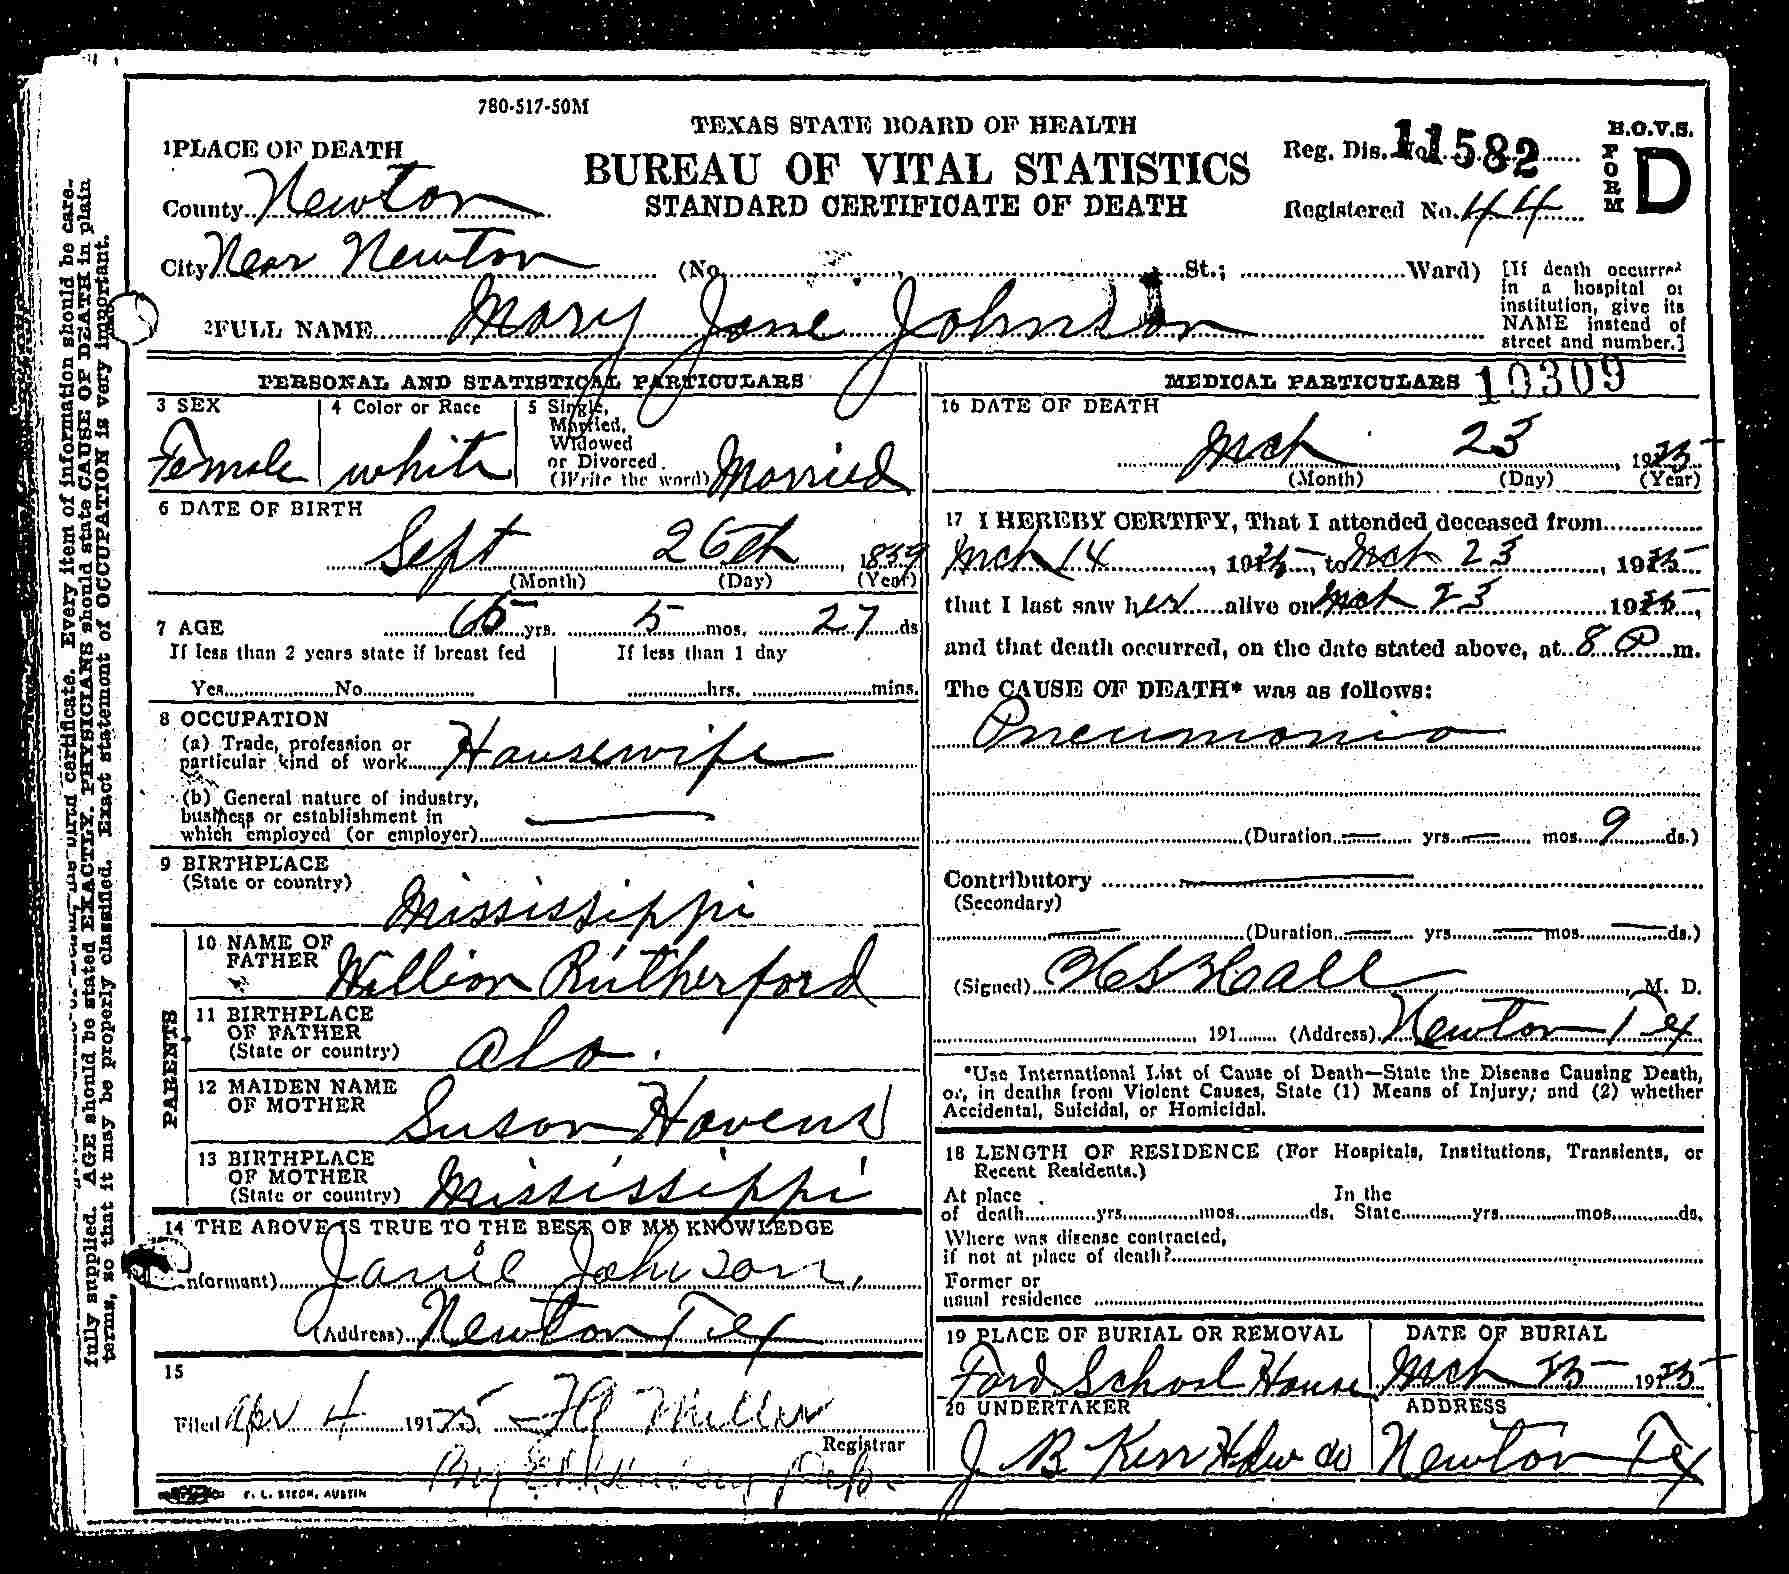 780-517-50M
TEXAS STATE BOARD OF HEALTH
BUREAU OF VITAL STATISTICS
STANDARD CERTIFICATE OF DEATH
B.O.V.S.
FORM D
Reg. Dis. No. 11582
Registered No. 44
1 PLACE OF DEATH
County Newton
City Near Newton (No. St.; Ward)
[If death occurred
in a hospital or
institution, give its
NAME instead of
street and number.]
2 FULL NAME Mary Jane Johnson
PERSONAL AND STATISTICAL PARTICULARS
3 SEX
Female
4 Color or Race
white
5 Single,
Married,
Widowed
or Divorced.
(Write the word) Married
6 DATE OF BIRTH
Sept 26th, 1859
(Month) (Day) (Year)
7 AGE 65 yrs. 5 mos. 27 ds
If less than 2 years state if breast fed
Yes No
If less than 1 day
hrs. mins.
8 OCCUPATION
(a) Trade, profession or
particular kind of work Housewife
(b) General nature of industry,
business or establishment in
which employed (or employer)
9 BIRTHPLACE
(State or country)
Mississippi
PARENTS
10 NAME OF
FATHER William Rutherford
11 BIRTHPLACE
OF FATHER
(State or country) Ala.
12 MAIDEN NAME
OF MOTHER Susan Havens
13 BIRTHPLACE
OF MOTHER
(State or country) Mississippi
14 THE ABOVE IS TRUE TO THE BEST OF MY KNOWLEDGE
nformant) Janie Johnson,
(Address) Newton Tex
15
Filed Apr 4 191 25 Miller
Registrar
By Dep.
F. L. STECK, AUSTIN
MEDICAL PARTICULARS 10309
16 DATE OF DEATH
Mch 23, 1925
(Month) (Day) (Year)
17 I HEREBY CERTIFY, That I attended deceased from
Mch 14, 1925, to Mch 23, 1925
that I last saw her alive on Mch 23 1925,
and that death occurred, on the date stated above, at 8 P m.
The CAUSE OF DEATH* was as follows:
Pneumonia
(Duration — yrs. — mos. 9 ds.)
Contributory
(Secondary)
(Duration — yrs. — mos. — ds.)
(Signed) Hall, M. D.
191 (Address) Newton Tex
*Use International List of Cause of Death—State the Disease Causing Death,
or, in deaths from Violent Causes, State (1) Means of Injury; and (2) whether
Accidental, Suicidal, or Homicidal.
18 LENGTH OF RESIDENCE (For Hospitals, Institutions, Transients, or
Recent Residents.)
At place
of death yrs. mos. ds.
In the
State yrs. mos. ds.
Where was disease contracted,
if not at place of death?
Former or
usual residence
19 PLACE OF BURIAL OR REMOVAL
Ford School House
DATE OF BURIAL
Mch 25 1925
20 UNDERTAKER
J. B. Kerr Hdw Co
ADDRESS
Newton Tex
certificate. Every item of information should be care-
fully supplied. AGE should be stated EXACTLY. PHYSICIANS should state CAUSE OF DEATH in plain
terms, so that it may be properly classified. Exact statement of OCCUPATION is very important.